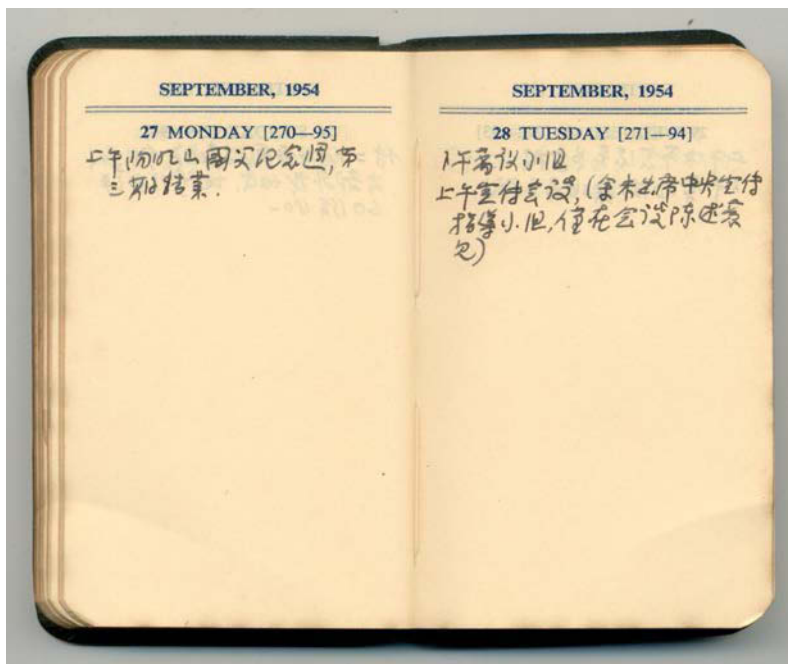 SEPTEMBER, 1954
27 MONDAY [270—95]
上午阳明山國父纪念週,第
三期结業.
SEPTEMBER, 1954
28 TUESDAY [271—94]
下午 小组
上午宣传会谈,(余未出席中央宣传
指導小组,僅在会谈陈述意
见)